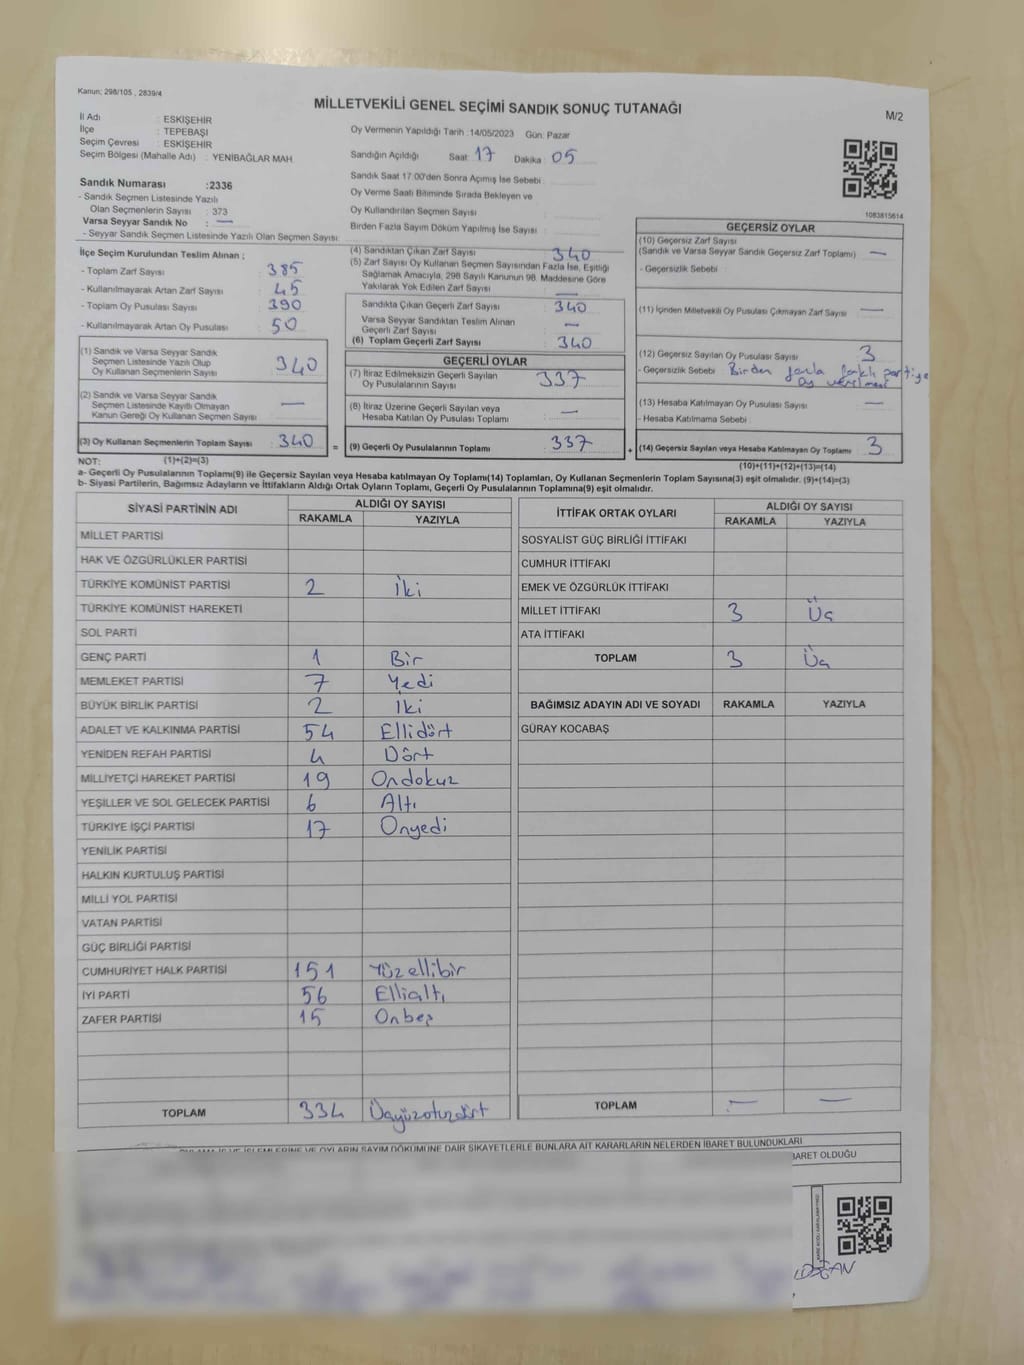 Kanun; 298/105 , 2839/4
MİLLETVEKİLİ GENEL SEÇİMİ SANDIK SONUÇ TUTANAĞI
M/2
İl Adı : ESKİŞEHİR
İlçe : TEPEBAŞI
Seçim Çevresi : ESKİŞEHİR
Seçim Bölgesi (Mahalle Adı) : YENİBAĞLAR MAH.
Sandık Numarası :2336
- Sandık Seçmen Listesinde Yazılı
Olan Seçmenlerin Sayısı : 373
Varsa Seyyar Sandık No : —
- Seyyar Sandık Seçmen Listesinde Yazılı Olan Seçmen Sayısı:
Oy Vermenin Yapıldığı Tarih :14/05/2023 Gün: Pazar
Sandığın Açıldığı Saat: 17 Dakika: 05
Sandık Saat 17:00'den Sonra Açımış İse Sebebi :
Oy Verme Saati Bitiminde Sırada Bekleyen ve
Oy Kullandırılan Seçmen Sayısı :
Birden Fazla Sayım Döküm Yapılmış İse Sayısı :
1083815614
İlçe Seçim Kurulundan Teslim Alınan ;
- Toplam Zarf Sayısı : 385
- Kullanılmayarak Artan Zarf Sayısı : 45
- Toplam Oy Pusulası Sayısı : 390
- Kullanılmayarak Artan Oy Pusulası : 50
(1) Sandık ve Varsa Seyyar Sandık
Seçmen Listesinde Yazılı Olup
Oy Kullanan Seçmenlerin Sayısı : 340
(2) Sandık ve Varsa Seyyar Sandık
Seçmen Listesinde Kayıtlı Olmayan
Kanun Gereği Oy Kullanan Seçmen Sayısı : —
(3) Oy Kullanan Seçmenlerin Toplam Sayısı : 340 =
(4) Sandıktan Çıkan Zarf Sayısı : 340
(5) Zarf Sayısı Oy Kullanan Seçmen Sayısından Fazla İse, Eşitliği
Sağlamak Amacıyla, 298 Sayılı Kanunun 98. Maddesine Göre
Yakılarak Yok Edilen Zarf Sayısı : —
Sandıkta Çıkan Geçerli Zarf Sayısı : 340
Varsa Seyyar Sandıktan Teslim Alınan
Geçerli Zarf Sayısı : —
(6) Toplam Geçerli Zarf Sayısı : 340
GEÇERLİ OYLAR
(7) İtiraz Edilmeksizin Geçerli Sayılan
Oy Pusulalarının Sayısı : 337
(8) İtiraz Üzerine Geçerli Sayılan veya
Hesaba Katılan Oy Pusulası Toplamı : —
(9) Geçerli Oy Pusulalarının Toplamı : 337 +
GEÇERSİZ OYLAR
(10) Geçersiz Zarf Sayısı
(Sandık ve Varsa Seyyar Sandık Geçersiz Zarf Toplamı) : —
- Geçersizlik Sebebi :
(11) İçinden Milletvekili Oy Pusulası Çıkmayan Zarf Sayısı : —
(12) Geçersiz Sayılan Oy Pusulası Sayısı : 3
- Geçersizlik Sebebi : Birden fazla farklı partiye
oy verilmesi
(13) Hesaba Katılmayan Oy Pusulası Sayısı : —
- Hesaba Katılmama Sebebi :
(14) Geçersiz Sayılan veya Hesaba Katılmayan Oy Toplamı : 3
NOT: (1)+(2)=(3)
(10)+(11)+(12)+(13)=(14)
a- Geçerli Oy Pusulalarının Toplamı(9) ile Geçersiz Sayılan veya Hesaba katılmayan Oy Toplamı(14) Toplamları, Oy Kullanan Seçmenlerin Toplam Sayısına(3) eşit olmalıdır. (9)+(14)=(3)
b- Siyasi Partilerin, Bağımsız Adayların ve İttifakların Aldığı Ortak Oyların Toplamı, Geçerli Oy Pusulalarının Toplamına(9) eşit olmalıdır.
SİYASİ PARTİNİN ADI ALDIĞI OY SAYISI
RAKAMLA YAZIYLA
MİLLET PARTİSİ
HAK VE ÖZGÜRLÜKLER PARTİSİ
TÜRKİYE KOMÜNİST PARTİSİ 2 İki
TÜRKİYE KOMÜNİST HAREKETİ
SOL PARTİ
GENÇ PARTİ 1 Bir
MEMLEKET PARTİSİ 7 Yedi
BÜYÜK BİRLİK PARTİSİ 2 İki
ADALET VE KALKINMA PARTİSİ 54 Ellidört
YENİDEN REFAH PARTİSİ 4 Dört
MİLLİYETÇİ HAREKET PARTİSİ 19 Ondokuz
YEŞİLLER VE SOL GELECEK PARTİSİ 6 Altı
TÜRKİYE İŞÇİ PARTİSİ 17 Onyedi
YENİLİK PARTİSİ
HALKIN KURTULUŞ PARTİSİ
MİLLİ YOL PARTİSİ
VATAN PARTİSİ
GÜÇ BİRLİĞİ PARTİSİ
CUMHURİYET HALK PARTİSİ 151 Yüzellibir
İYİ PARTİ 56 Ellialtı
ZAFER PARTİSİ 15 Onbeş
TOPLAM 334 Üçyüzotuzdört
İTTİFAK ORTAK OYLARI ALDIĞI OY SAYISI
RAKAMLA YAZIYLA
SOSYALİST GÜÇ BİRLİĞİ İTTİFAKI
CUMHUR İTTİFAKI
EMEK VE ÖZGÜRLÜK İTTİFAKI
MİLLET İTTİFAKI 3 Üç
ATA İTTİFAKI
TOPLAM 3 Üç
BAĞIMSIZ ADAYIN ADI VE SOYADI RAKAMLA YAZIYLA
GÜRAY KOCABAŞ
TOPLAM — —
OYLARIN SAYIM DÖKÜMÜNE DAİR ŞİKAYETLERLE BUNLARA AİT KARARLARIN NELERDEN İBARET BULUNDUKLARI
BARET OLDUĞU